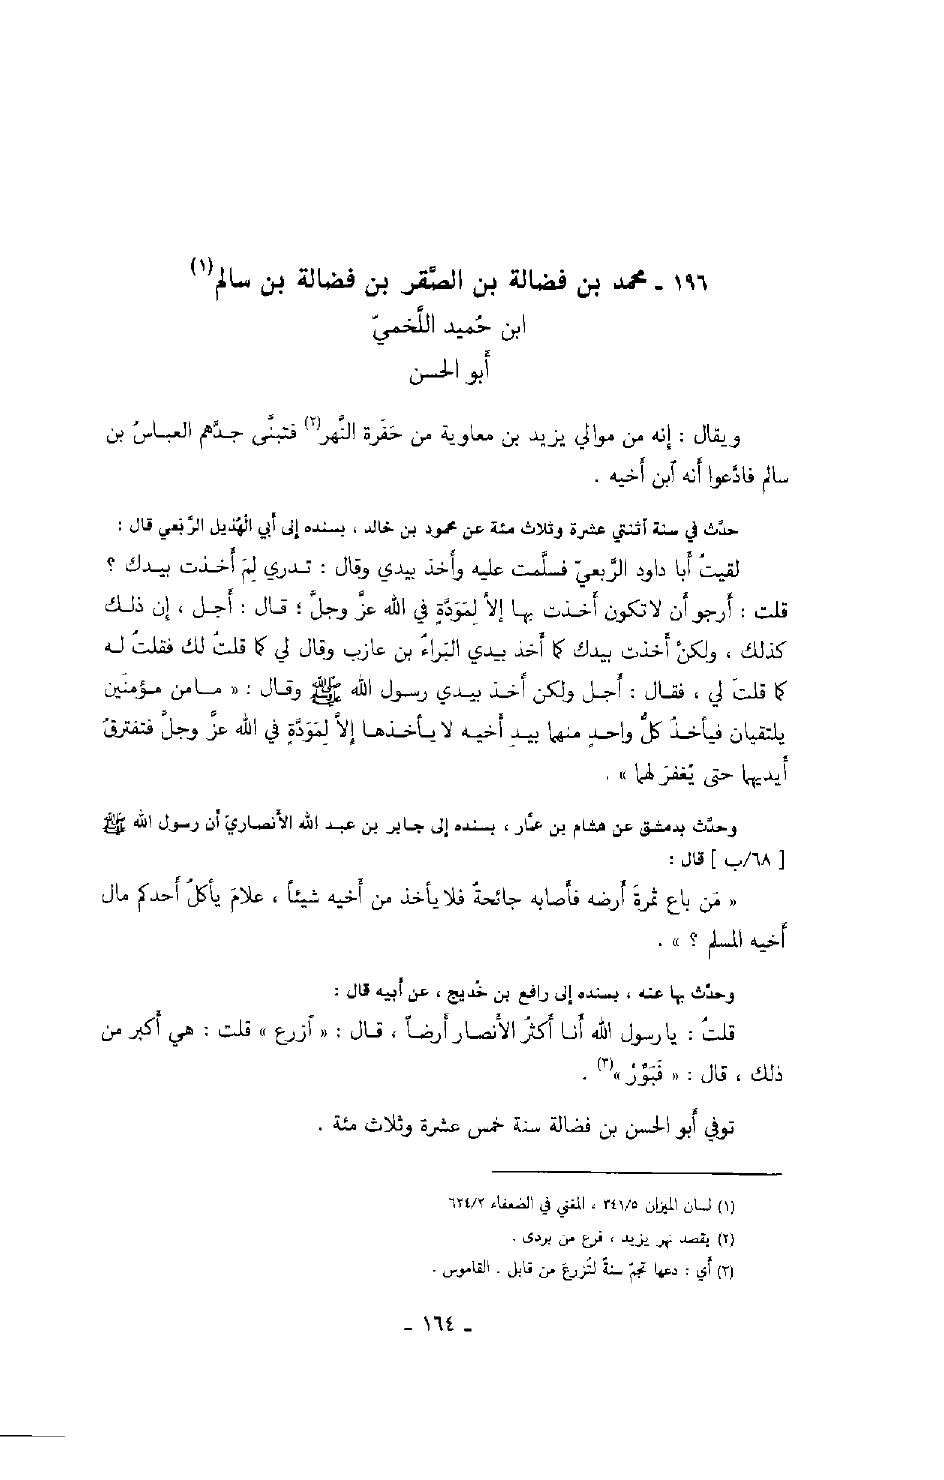 ١٩٦ - محمد بن فضالة بن الصَّقر بن فضالة بن سالم(١)
ابن حُميد اللَّخميّ
أبو الحسن
ويقال : إنه من موالي يزيد بن معاوية من حَفَرة النَّهر(٢) فتبنَّى جدَّهم العباسُ بن
سالم فادَّعوا أنه آبن أخيه .
حدَّث في سنة آثنتي عشرة وثلاث مئة عن محمود بن خالد ، بسنده إلى أبي الهُذيل الرَّبَعي قال :
لقيتُ أبا داود الرَّبعيّ فسلَّمت عليه وأخذ بيدي وقال : تدري لِمَ أخذت بيدك ؟
قلت : أرجو أن لا تكون أخذت بها إلاَّ لِمَوَدَّةٍ في الله عزَّ وجلَّ ؛ قال : أجل ، إن ذلك
كذلك ، ولكنْ أخذت بيدك كما أخذ بيدي البَراءُ بن عازب وقال لي كما قلتُ لك فقلتُ له
كما قلتَ لي ، فقال : أجل ولكن أخذ بيدي رسول الله ﷺ وقال : « ما من مؤمنَين
يلتقيان فيأخذُ كلُّ واحدٍ منهما بيدِ أخيه لا يأخذها إلاَّ لِمَوَدَّةٍ في الله عزَّ وجلَّ فتفترقُ
أيديهما حتى يُغفرَ لهما » .
وحدَّث بدمشق عن هشام بن عمَّار ، بسنده إلى جابر بن عبد الله الأنصاريّ أن رسول الله ﷺ
[ ٦٨/ب ] قال :
« مَن باع ثمرةَ أرضه فأصابه جائحةٌ فلا يأخذ من أخيه شيئاً ، علامَ يأكلُ أحدكم مال
أخيه المسلم ؟ » .
وحدَّث بها عنه ، بسنده إلى رافع بن خُديج ، عن أبيه قال :
قلتُ : يا رسول الله أنا أكثرُ الأنصار أرضاً ، قال : « آزرع » قلت : هي أكبر من
ذلك ، قال : « فَبَوِّرْ »(٣) .
توفي أبو الحسن بن فضالة سنة خمس عشرة وثلاث مئة .
(١) لسان الميزان ٣٤١/٥ ، المغني في الضعفاء ٦٢٤/٢
(٢) يقصد نهر يزيد ، فرع من بردى .
(٣) أي : دعها تجمّ سنةً لتُزرعَ من قابل . القاموس .
- ١٦٤ -